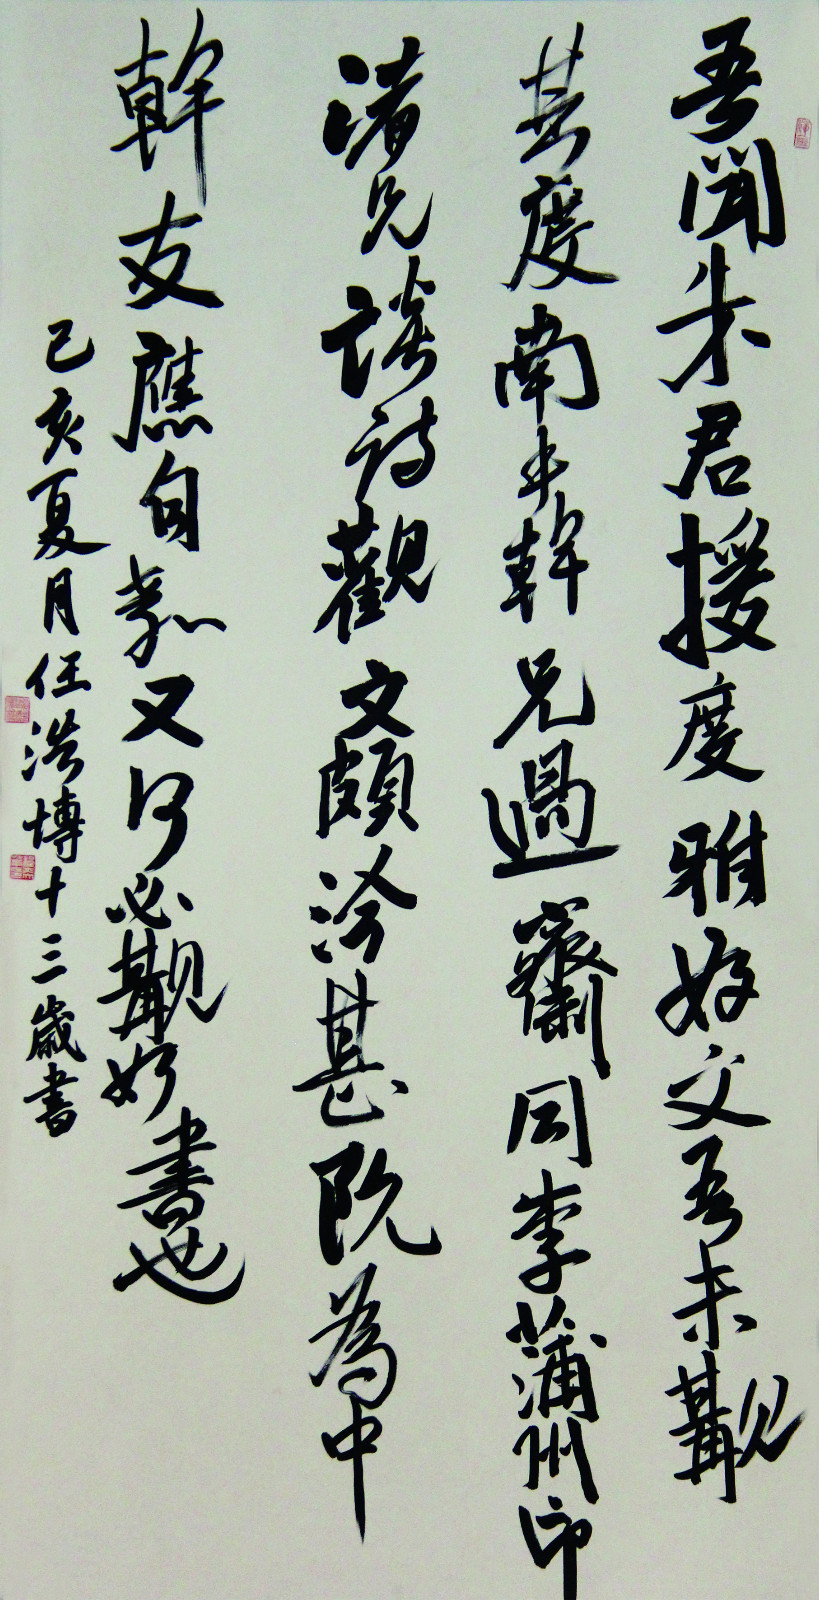 吾聞朱君援度雅好文吾未觀
其度南牛幹兄過齋同李蒲州印
渚兄談詩觀文頗洽甚既為中
幹友應句彰又何必觀好書也
己亥夏月任浩博十三歲書